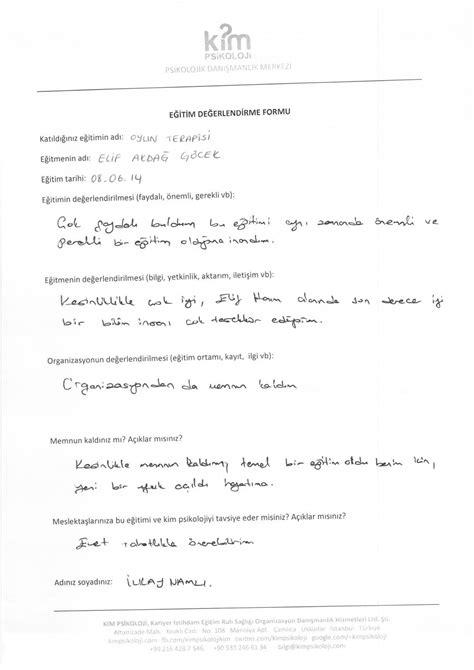 kim
PSİKOLOJİ
PSİKOLOJİK DANIŞMANLIK MERKEZİ
EĞİTİM DEĞERLENDİRME FORMU
Katıldığınız eğitimin adı: OYUN TERAPİSİ
Eğitmenin adı: ELİF AKDAĞ GÖÇEK
Eğitim tarihi: 08.06.14
Eğitimin değerlendirilmesi (faydalı, önemli, gerekli vb):
Çok faydalı buldum bu eğitimi aynı zamanda önemli ve
gerekli bir eğitim olduğuna inandım.
Eğitmenin değerlendirilmesi (bilgi, yetkinlik, aktarım, iletişim vb):
Kesinlikle çok iyi, Elif Hanım alanında son derece iyi
bir bilim insanı çok teşekkür ediyorum.
Organizasyonun değerlendirilmesi (eğitim ortamı, kayıt, ilgi vb):
Organizasyondan da memnun kaldım
Memnun kaldınız mı? Açıklar mısınız?
Kesinlikle memnun kaldım, temel bir eğitim oldu benim için,
yeni bir ufuk açıldı hayatıma.
Meslektaşlarınıza bu eğitimi ve kim psikolojiyi tavsiye eder misiniz? Açıklar mısınız?
Evet rahatlıkla önerebilirim
Adınız soyadınız: İLKAY NAMLI.
KİM PSİKOLOJİ, Kariyer İstihdam Eğitim Ruh Sağlığı Organizasyon Danışmanlık Hizmetleri Ltd. Şti.
Altunizade Mah. Kısıklı Cad. No: 108 Marmara Apt. Çamlıca Üsküdar İstanbul Türkiye
kimpsikoloji.com fb.com/kimpsikolojikim twitter.com/kimpsikoloji google.com/+kimpsikoloji
+90 216 428 7 546 +90 533 246 61 34 bilgi@kimpsikoloji.com